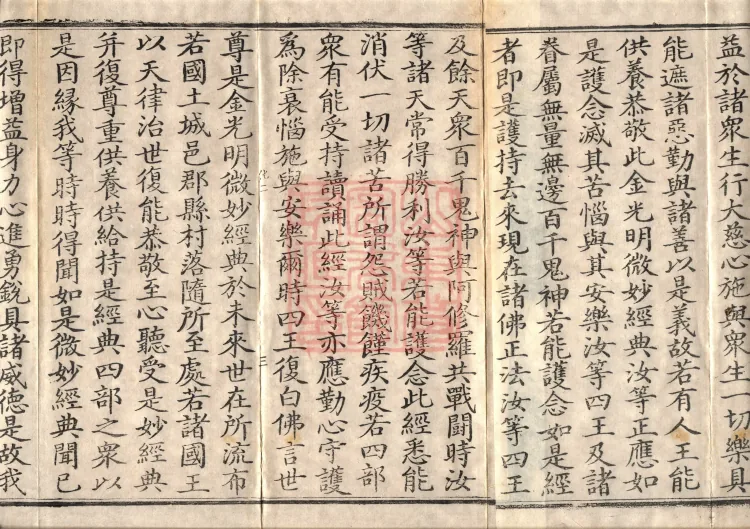 益於諸衆生行大慈心施與衆生一切樂具
能遮諸惡勤與諸善以是義故若有人王能
供養恭敬此金光明微妙經典汝等正應如
是護念滅其苦惱與其安樂汝等四王及諸
眷屬無量無邊百千鬼神若能護念如是經
者即是護持去來現在諸佛正法汝等四王
及餘天衆百千鬼神與阿修羅共戰鬪時汝
等諸天常得勝利汝等若能護念此經悉能
消伏一切諸苦所謂怨賊饑饉疾疫若四部
衆有能受持讀誦此經汝等亦應勤心守護
爲除衰惱施與安樂爾時四王復白佛言世
化二 三
尊是金光明微妙經典於未來世在所流布
若國土城邑郡縣村落隨所至處若諸國王
以天律治世復能恭敬至心聽受是妙經典
并復尊重供養供給持是經典四部之衆以
是因緣我等時時得聞如是微妙經典聞已
即得增益身力心進勇銳具諸威德是故我